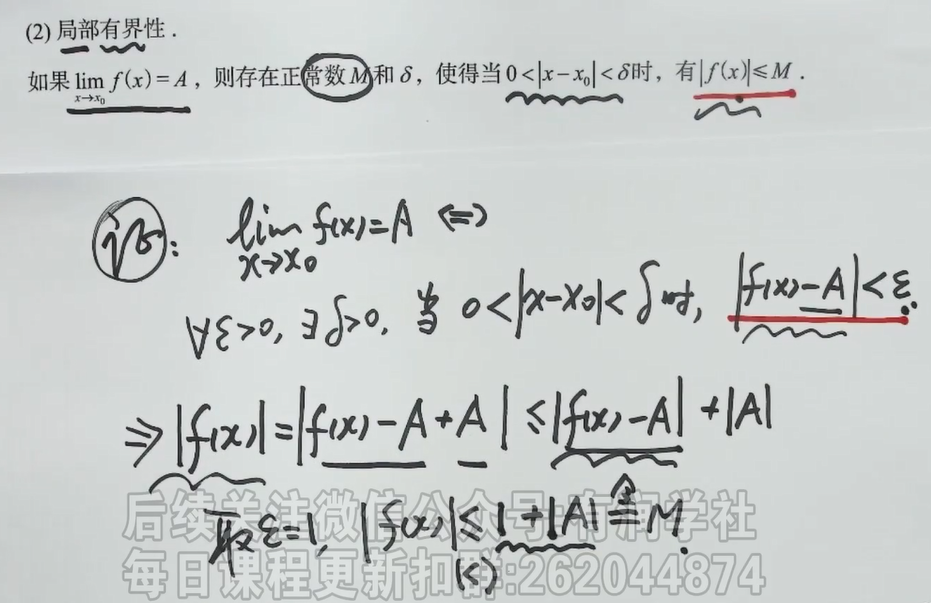 (2) 局部有界性.
如果 lim f(x)=A, 则存在正常数M和δ, 使得当0<|x-x₀|<δ时, 有|f(x)|≤M.
x→x₀
证: lim f(x)=A ⟺
x→x₀
∀ε>0, ∃δ>0, 当 0<|x-x₀|<δ时, |f(x)-A|<ε.
⇒|f(x)|=|f(x)-A+A|≤|f(x)-A|+|A|
取ε=1, |f(x)|≤1+|A|≙M.
(<)
后续关注微信公众号:
学社
每日课程更新扣群:262044874